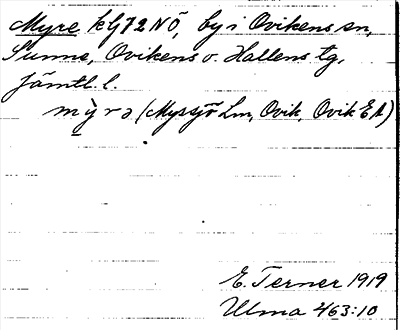 Myre, kG72NÖ, by i Ovikens sn,
Sunne, Ovikens o. Hallens tg,
Jämtl. l.
mỳrə (Myssjö Lm, Ovik, Ovik EA)
E. Terner 1919
Ulma 463:10